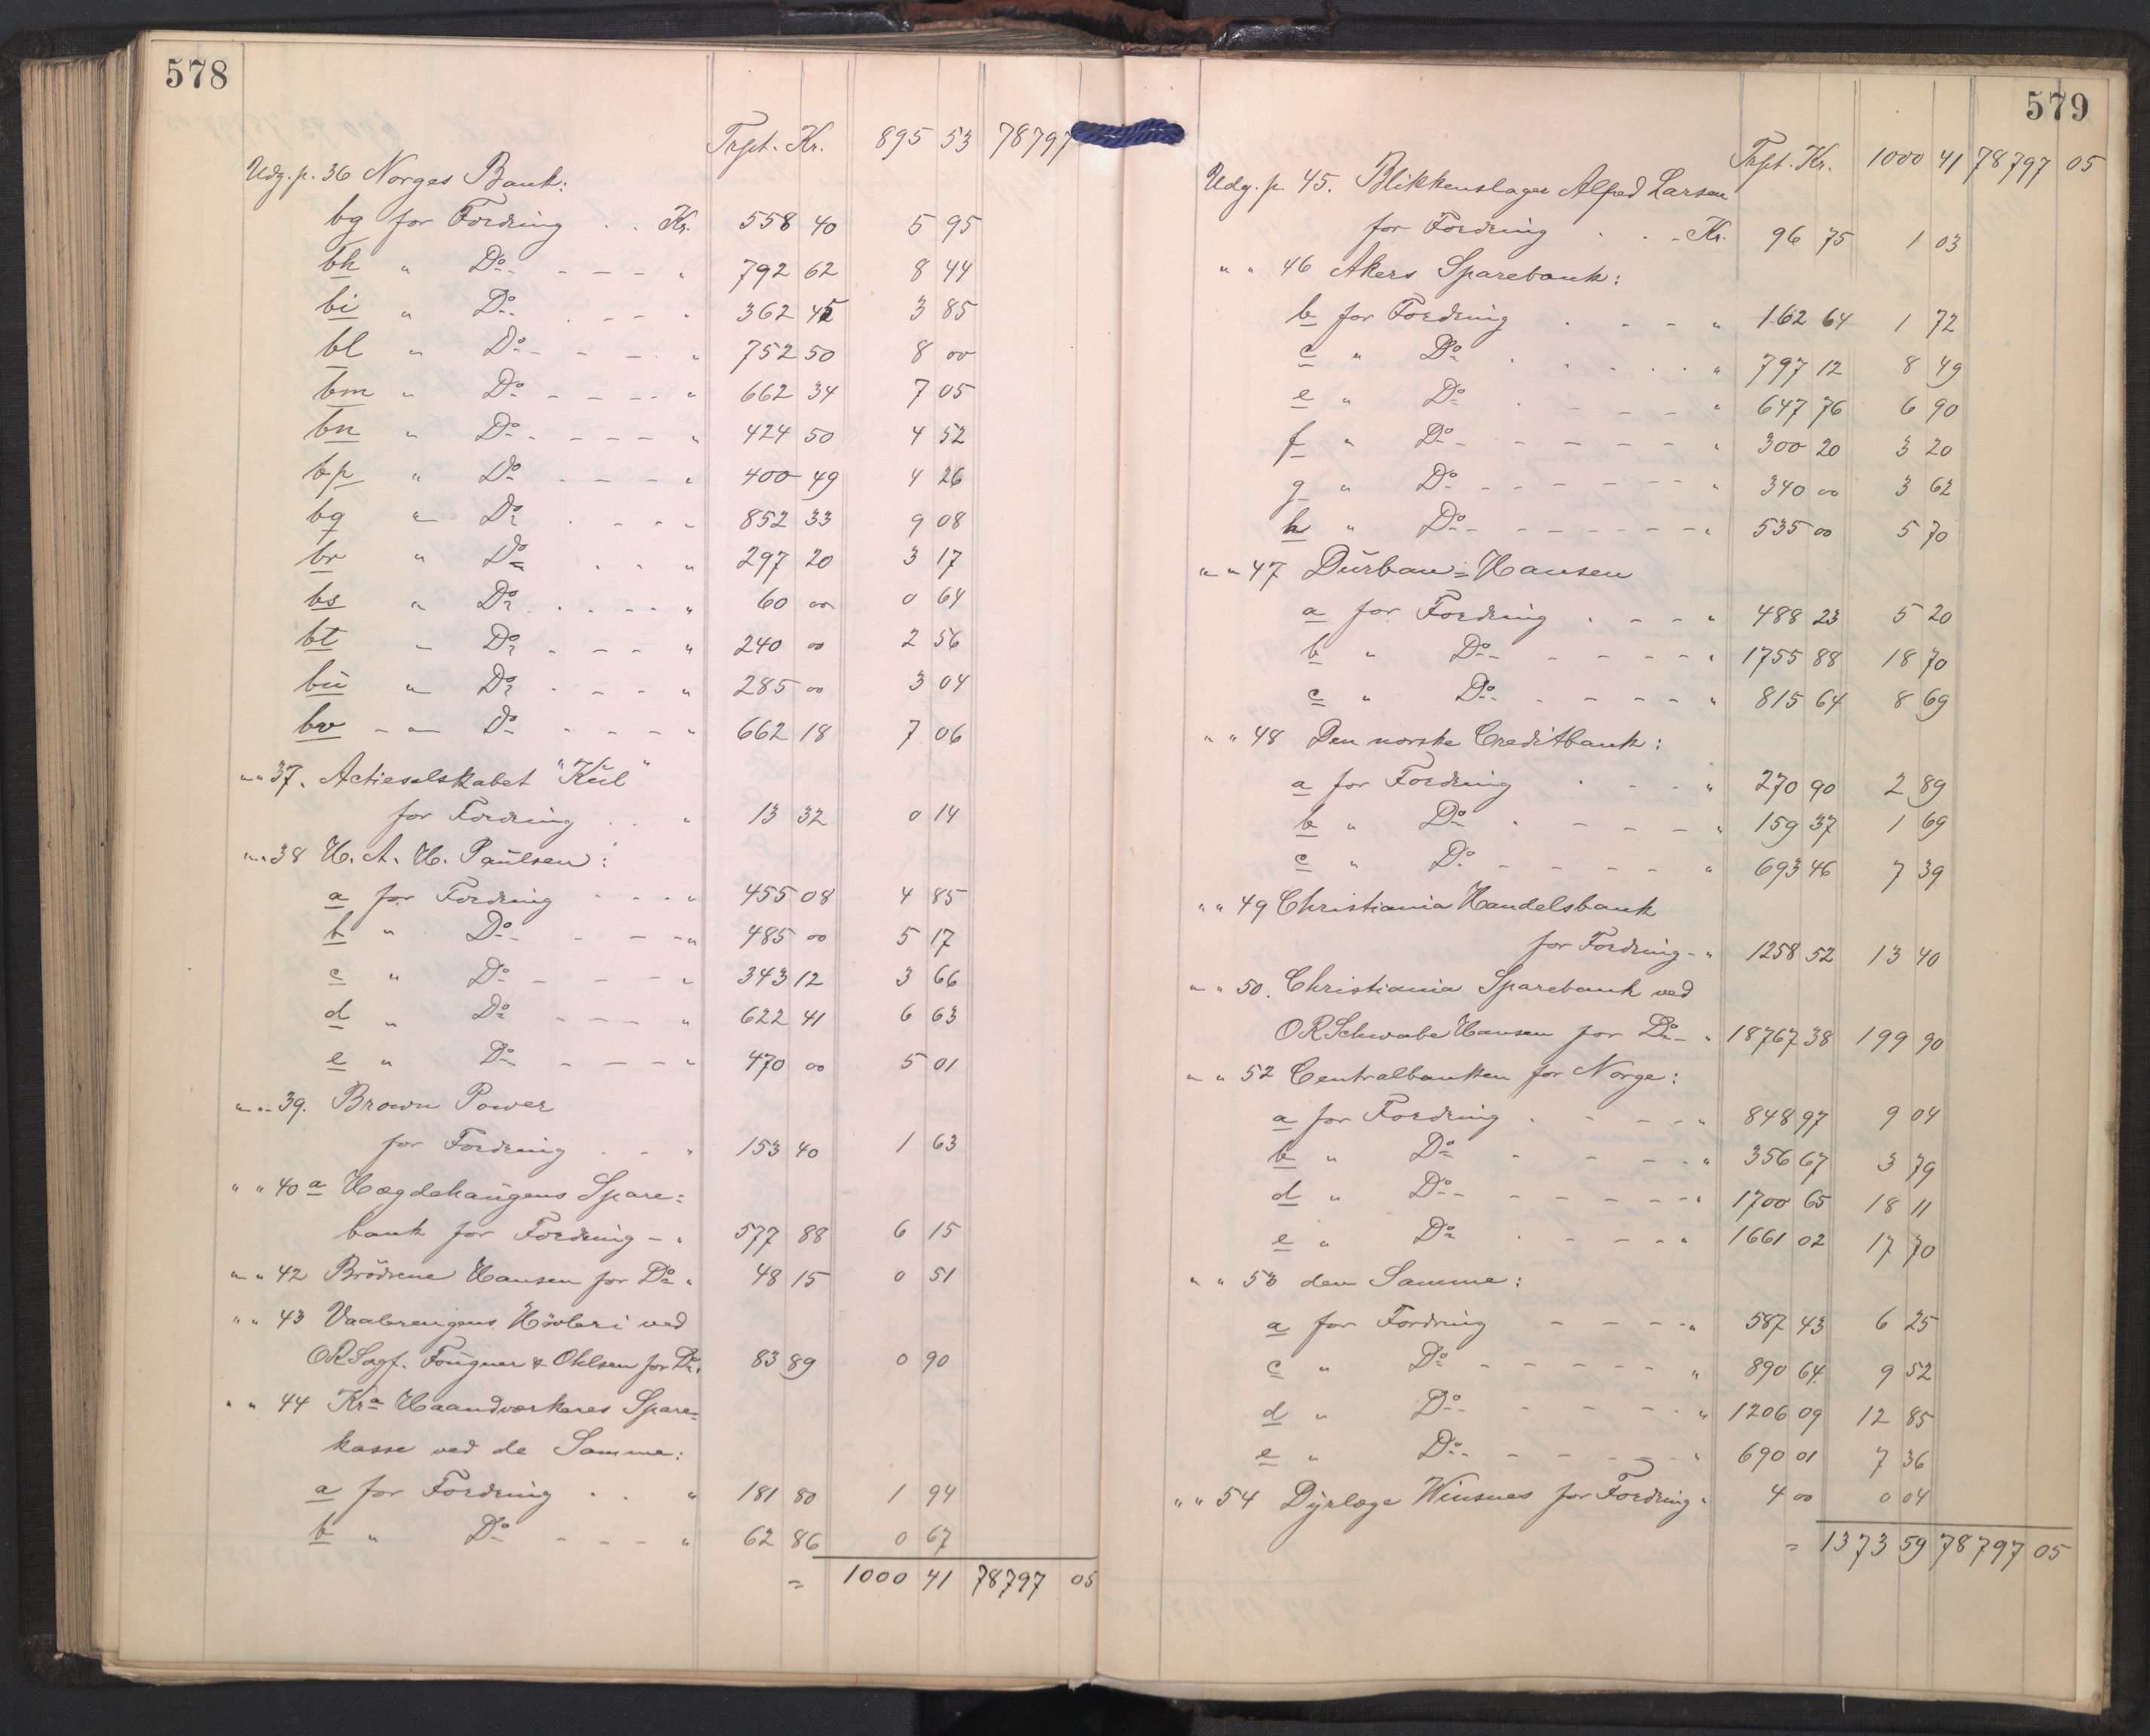 578
Trspt. Kr. 895 53 78797
Udg. p. 36 Norges Bank:
bg for Fordring . . Kr. 558 40 5 95
bh " Do - - - - " 792 62 8 44
bi " Do . - - - " 362 45 3 85
bl " Do - - - - " 752 50 8 00
bm " Do - - - - " 662 34 7 05
bn " Do - - - - " 424 50 4 52
bp " Do - - - - " 400 49 4 26
bq " Do . - - - " 852 33 9 08
br " Do . . - " 297 20 3 17
bs " Do . . . - - " 60 00 0 64
bt " Do . - - - " 240 00 2 56
bu " Do . - - - " 285 00 3 04
bv - " Do - - - - " 662 18 7 06
" " 37. Actieselskabet "Kul"
for Fordring . . " 13 32 0 14
" " 38 H. A. H. Paulsen:
a for Fordring - - - " 455 08 4 85
b " Do - - - - " 485 00 5 17
c " Do - - - - " 343 12 3 66
d " Do - - - - " 622 41 6 63
e " Do - - - - " 470 00 5 01
" " 39. Brown Power
for Fordring . - " 153 40 1 63
" " 40 a Hægdehaugens Spare=
bank for Fordring - " 577 88 6 15
" " 42 Brödrene Hansen for Do " 48 15 0 51
" " 43 Vaalerengens Hövleri ved
ORSagf. Fougner & Ohlsen for Do " 83 89 0 90
" " 44 Kra Haandværkeres Spare=
kasse ved de Samme:
a for Fordring . . " 181 80 1 94
b " Do - - - " 62 86 0 67
= 1000 41 78797 05
579
Trspt. Kr. 1000 41 78797 05
Udg. p. 45. Blikkenslager Alfred Larsen
for Fordring . . - Kr. 96 75 1 03
" " 46 Akers Sparebank:
b for Fordring . - - - " 162 64 1 72
c " Do . . . . . " 797 12 8 49
e " Do . - - - " 647 76 6 90
f " Do - - - - - " 300 20 3 20
g " Do - - - - - - " 340 00 3 62
h " Do - - - - - - " 535 00 5 70
" " 47 Durban=Hansen
a for Fordring . - - " 488 23 5 20
b " Do - - - - - " 1755 88 18 70
c " Do - - - - - " 815 64 8 69
" " 48 Den norske Creditbank:
a for Fordring . - - " 270 90 2 89
b " Do . - - - - " 159 37 1 69
c " Do - - - - - " 693 46 7 39
" " 49 Christiania Handelsbank
for Fordring - " 1258 52 13 40
" " 50. Christiania Sparebank ved
ORSchwabe Hansen for Do - " 18767 38 199 90
" " 52 Centralbanken for Norge:
a for Fordring . - - - " 848 97 9 04
b " Do - - - - " 356 67 3 79
d " Do - - - - - - " 1700 65 18 11
e " Do . - - - - " 1661 02 17 70
" " 53 den Samme:
a for Fordring - - - - " 587 43 6 25
c " Do - - - - - " 890 64 9 52
d " Do - - - - - " 1206 09 12 85
e " Do - - - - - " 690 01 7 36
" " 54 Dyrlæge Winsnes for Fordring " 4 00 0 04
= 1373 59 78797 05